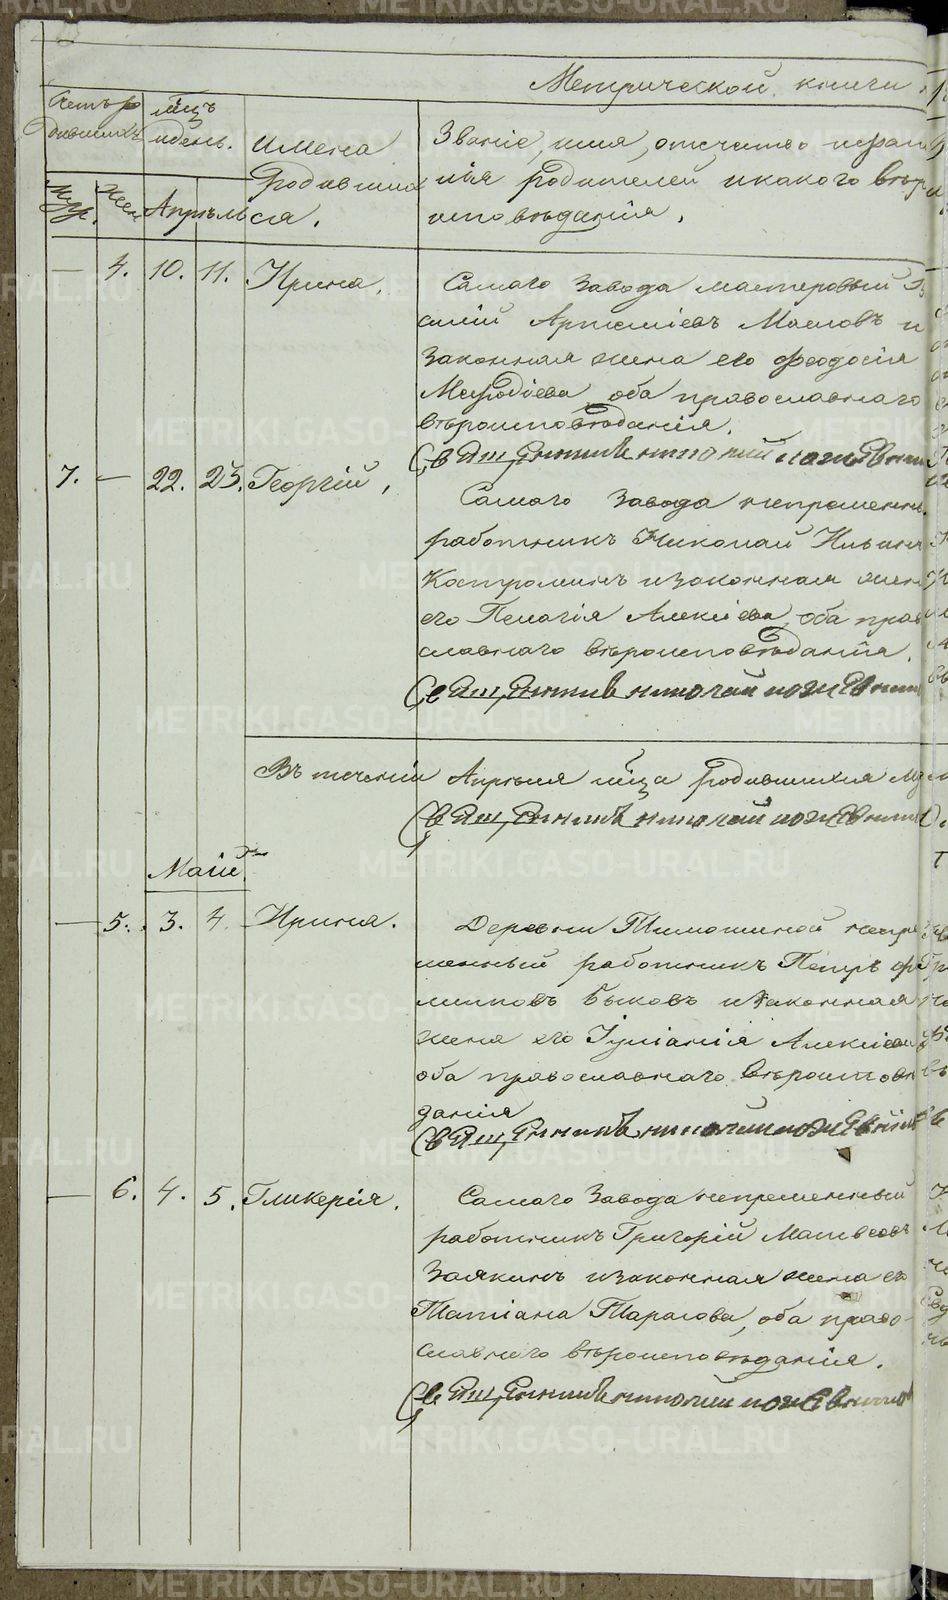 Метрической книги
Счетъ ро
дившихся
Мцъ
и день.
Имена
родивших
ся.
Званіе, имя, отчество и фами
лія родителей и какого вѣр
исповѣданія.
Муж.
Жен.
Апрѣль
— 4. 10. 11. Ирина.
Самаго Завода мастеровый
силій Артеміевъ Масловъ и
законная жена его Феодосія
Меѳодіева, оба православнаго
вѣроисповѣданія.
Священникъ Николай
7. — 22. 23. Георгій,
Самаго Завода непременн
работникъ Николай Ильинъ
Костроминъ и законная жен
его Пелагія Алексіева, оба прав
славнаго вѣроисповѣданія.
Священникъ Николай
Въ теченіи Апрѣля мца родившихся
Священникъ Николай
Маій
— 5. 3. 4. Ирина.
Деревни Тимошиной непре
менный работникъ Петръ Фи
липповъ Быковъ и законная
жена его Іуліанія Алексіева
оба православнаго вѣроисповѣ
данія
Священникъ Николай
— 6. 4. 5. Гликерія.
Самаго Завода непременный
работникъ Григорій Матвеевъ
Заякинъ и законная жена его
Татіана Тарасова, оба право-
славнаго вѣроисповѣданія.
Священникъ Николай
METRIKI.GASO-URAL.RU